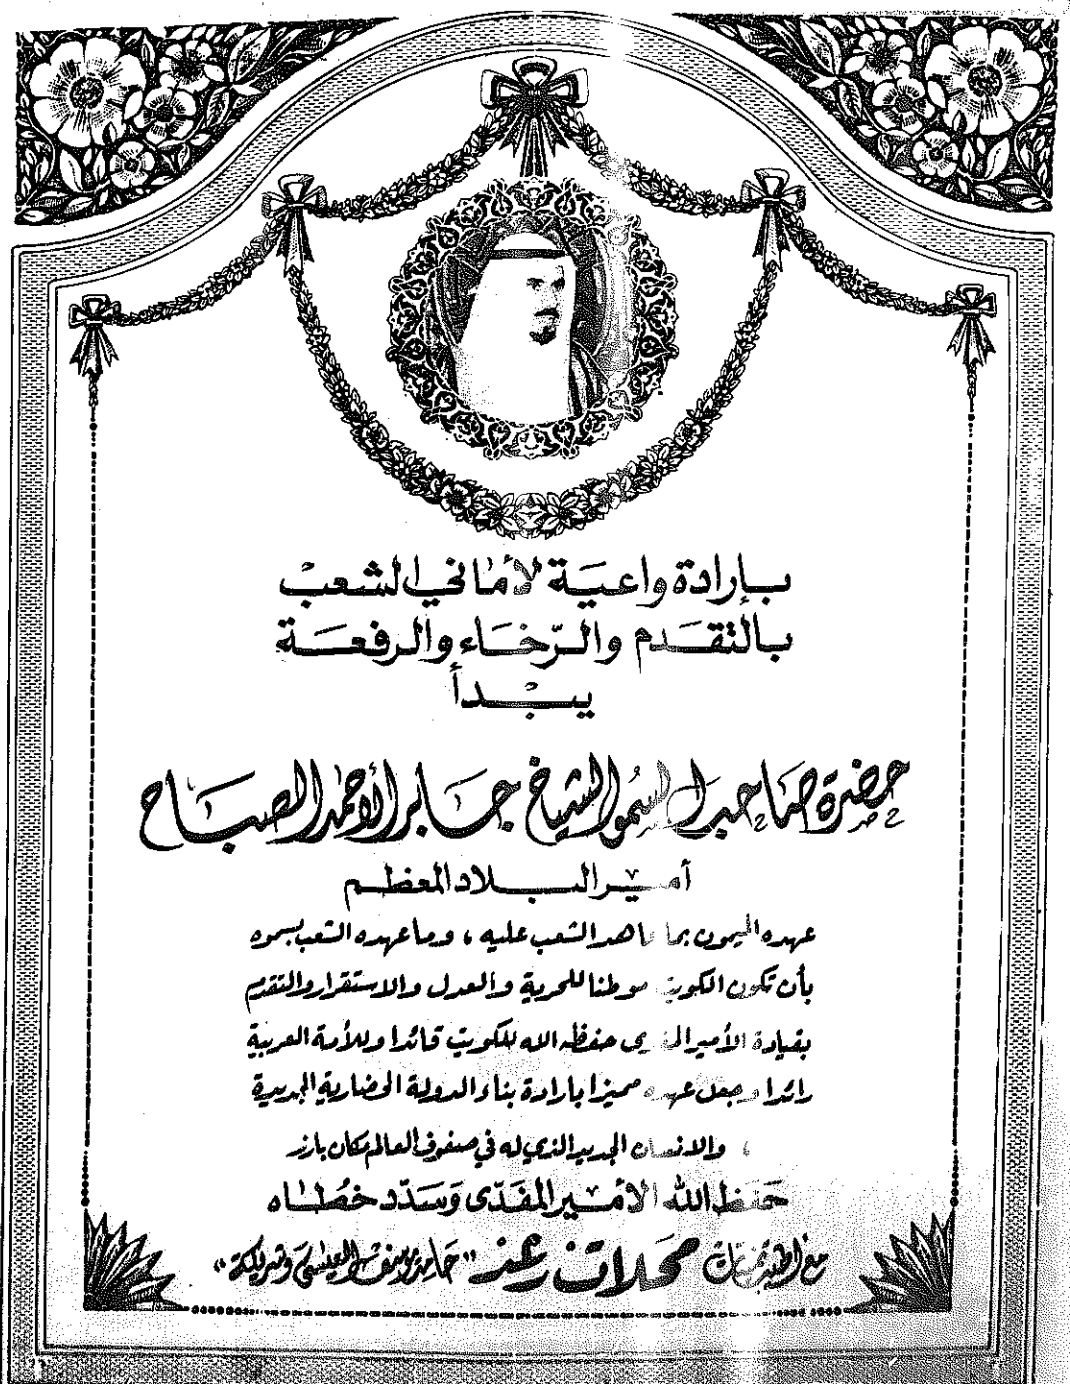 بإرادة واعية لأماني الشعب
بالتقدم والرّخاء والرفعة
يبدأ
حضرة صاحب السمو الشيخ جابر الأحمد الصباح
أمير البلاد المعظم
عهده الميمون بما عاهد الشعب عليه ، وما عهده الشعب بسموه
بأن تكون الكويت موطنا للحرية والعدل والاستقرار والتقدم
بقيادة الأمير المفدى حفظه الله للكويت قائدا وللأمة العربية
رائدا وجعل عهده مميزا بارادة بناء الدولة الحضارية الجديدة
، والانسان الجديد الذي له في صفوف العالم مكان بارز
حفظ الله الأمير المفدّى وسدّد خُطاه
مع اطيب تمنيات محلات رغد "حامد يوسف العيسى وشريكه"